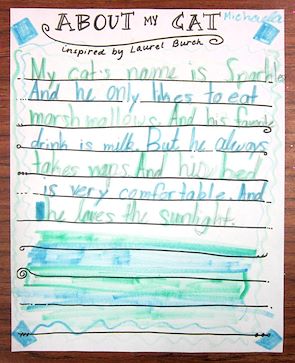 ABOUT MY CAT
Michaela
inspired by Laurel Burch
My cat's name is Sparkle
And he only likes to eat
marshmallows. And his favorite
drink is milk. But he always
takes naps. And his bed
is very comfortable. And
he loves the sunlight.